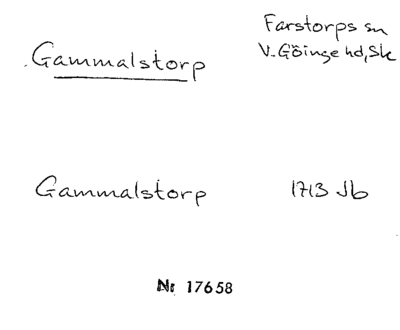 Gammalstorp
Farstorps sn
V. Göinge hd, Sk
Gammalstorp
1713 Jb
Nr 17658